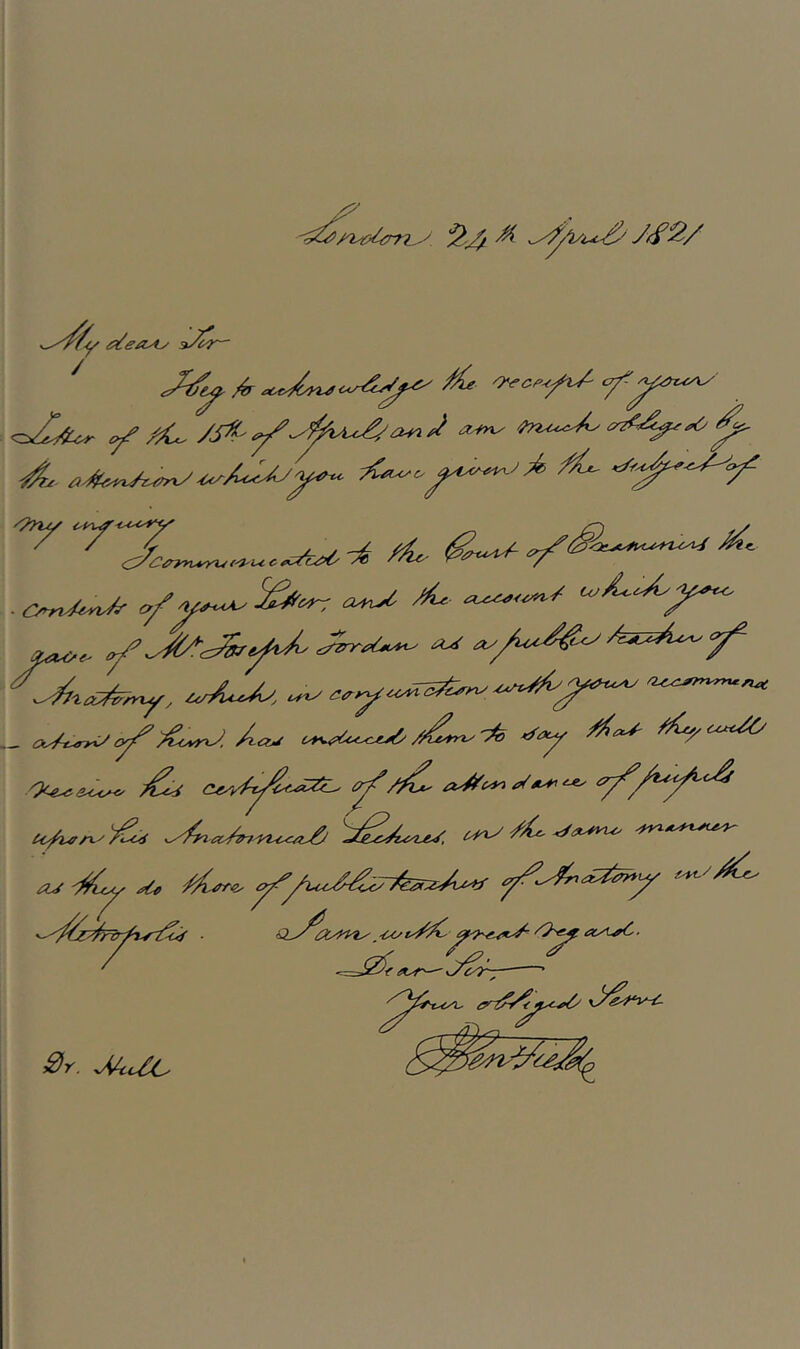 London 24th April 1821
My dear Sir—
I beg to acknowledge the receipt of your
Letter of the 15th of April and am much obliged by
the attention which you have given to the subject of
my enquiry
I communicated to the Court of Examiners the
contents of your Letter; and the account which you
gave of Mr Joseph Jordan as a public teacher of
Anatomy, which, in conjunction with your recommend
ation of him, has induced them to say that they will
receive his Certificate of the attendance of pupils
upon his Anatomical Lectures, in the same manner
as they do those of public teachers of Anatomy in the
Metropolis. I am, with great regard.
Dear Sir—
Your obliged Servt
Dr. Hull